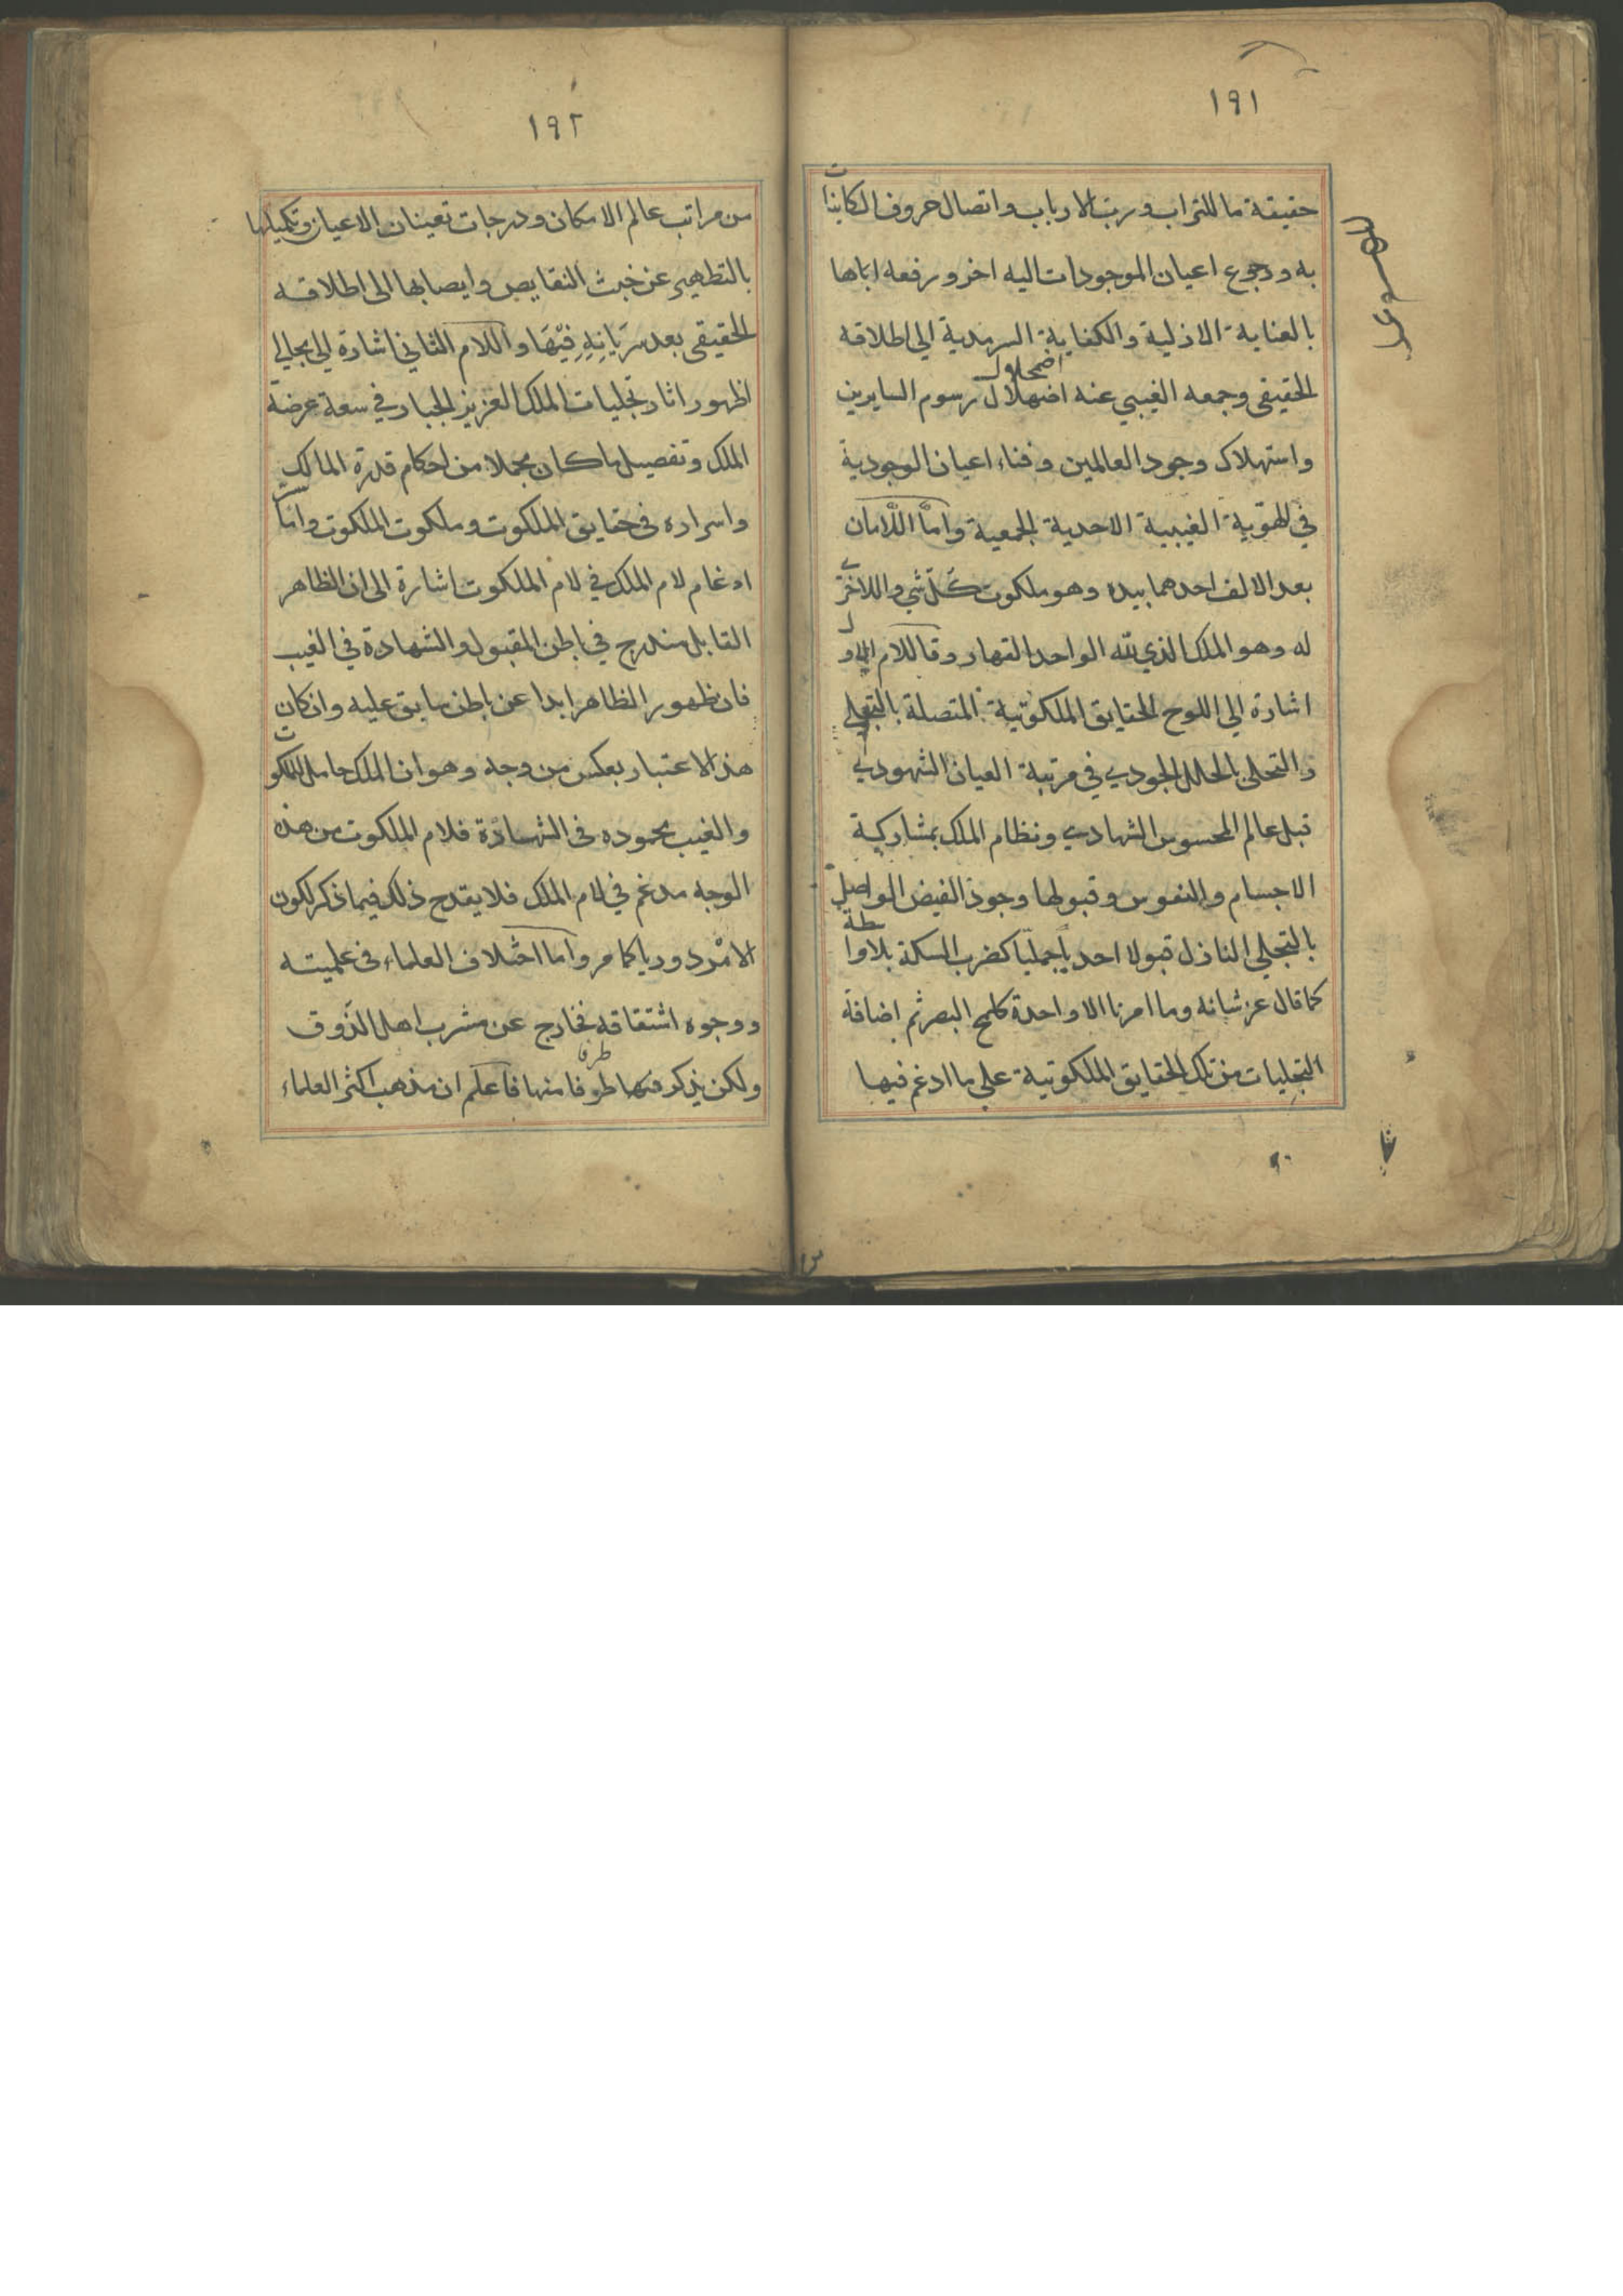 ١٩١
حقيقة ما للتراب ورب الارباب واتصال حروف الكاينات
به ورجوع اعيان الموجودات اليه اخر ورفعه اياها
بالعناية الازلية والكفاية السرمدية الي اطلاقه
الحقيقي وجمعه الغيبي عنه اضهلال رسوم السايرين
اضمحلال
واستهلاك وجود العالمين وفناء اعيان الوجودية
في الهوية الغيبية الاحدية الجمعية وامّا اللّامان
بعد الالف احدهما بيده وهو ملكوت كلّ شي واللاخر
له وهو الملك الذي لله الواحد القهار وقا للام
اشارة الي اللوح الحقايق الملكوتية المتصلة بالتجلي
والتحلي بالحلل الجودي في مرتبة العيان الشهودي
قبل عالم المحسوس الشهادي ونظام الملك بمشاركية
الاجسام والنفوس وقبولها وجود الفيض الواصل
بالتجلي النازل قبولا احديا جمليّا كضرب السكة بلاواسطة
كما قال عز شانه وما امرنا الا واحدة كلمح البصر ثم اضافة
التجليات من تلك الحقايق الملكوتية علي ما ادغم فيها
١٩٢
من مراتب عالم الامكان ودرجات تعينات الاعيان وتكميلها
بالتطهير عن خبث النقايص وايصابها الى اطلاقه
الحقيقي بعد سَرَيانِهِ فيّهَا واللام الثاني اشارة الي مجالي
اظهور اثار تجليات الملك العزيز الجبار في سعة عرضة
الملك وتفصيل ما كان مجملا من احكام قدرة المالك
واسراره في حقايق الملكوت وملكوت الملكوت وامّا
ادغام لام الملك في لام الملكوت اشارة الى ان الظاهر
القابل مندرج في باطن المقبول والشهادة في الغيب
فان ظهور الظاهر ابدا عن باطن سابق عليه وان كان
هذا الاعتبار بعكس من وجه وهو ان الملك حامل للملكوت
والغيب بحموده في الشهادة فلام الملكوت من هذه
الوجه مدغم في لام الملك فلا يقدح ذلك فيما ذكر لكون
الامْر دوريا كما مر واما اختلاف العلماء في علميته
ووجوه اشتقاقه فخارج عن مشرب اهل الذّوق
ولكن يذكر منها طرفا منها فاعلم ان مذهب اكثر العلماء
طرفا